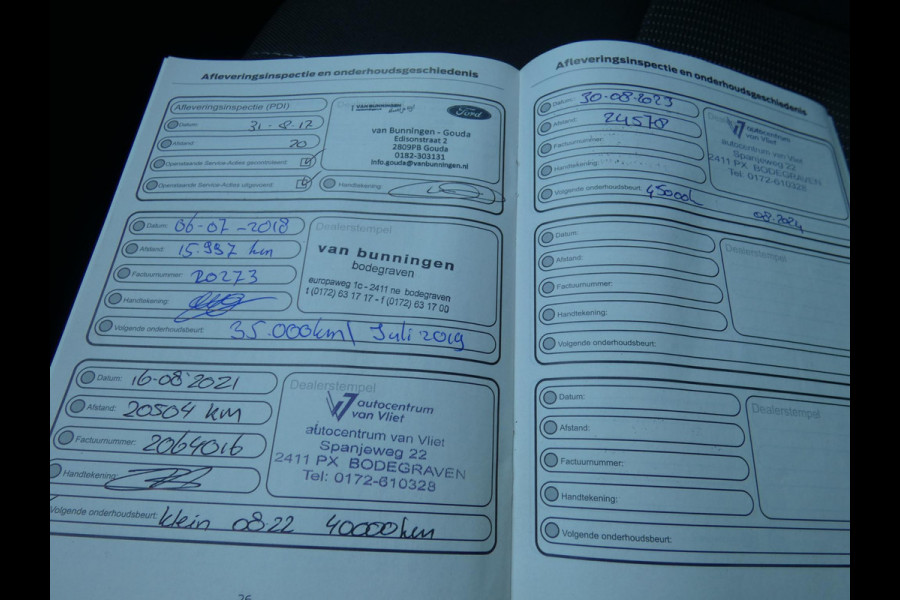 Afleveringsinspectie en onderhoudsgeschiedenis
Afleveringsinspectie (PDI)
Datum: 31-8-17
Afstand: 20
Openstaande Service-Acties gecontroleerd:
Openstaande Service-Acties uitgevoerd:
VAN BUNNINGEN
Ford
van Bunningen - Gouda
Edisonstraat 2
2809PB Gouda
0182-303131
info.gouda@vanbunningen.nl
Handtekening:
Datum: 06-07-2018
Afstand: 15.997 km
Factuurnummer: 20273
Handtekening:
Volgende onderhoudsbeurt: 35.000km/ Juli 2019
Dealerstempel
van bunningen
bodegraven
europaweg 1c - 2411 ne bodegraven
t (0172) 63 17 17 - f (0172) 63 17 00
Datum: 16-08-2021
Afstand: 20504 km
Factuurnummer: 2064016
Handtekening:
Volgende onderhoudsbeurt: klein 08.22 40000km
Dealerstempel
autocentrum
van Vliet
autocentrum van Vliet
Spanjeweg 22
2411 PX BODEGRAVEN
Tel: 0172-610328
Afleveringsinspectie en onderhoudsgeschiedenis
Datum: 30-08-2023
Afstand: 24578
Factuurnummer:
Handtekening:
Volgende onderhoudsbeurt: 45000k 08.2024
autocentrum
van Vliet
autocentrum van Vliet
Spanjeweg 22
2411 PX BODEGRAVEN
Tel: 0172-610328
Datum:
Afstand:
Factuurnummer:
Handtekening:
Volgende onderhoudsbeurt:
Dealerstempel
Datum:
Afstand:
Factuurnummer:
Handtekening:
Volgende onderhoudsbeurt:
Dealerstempel